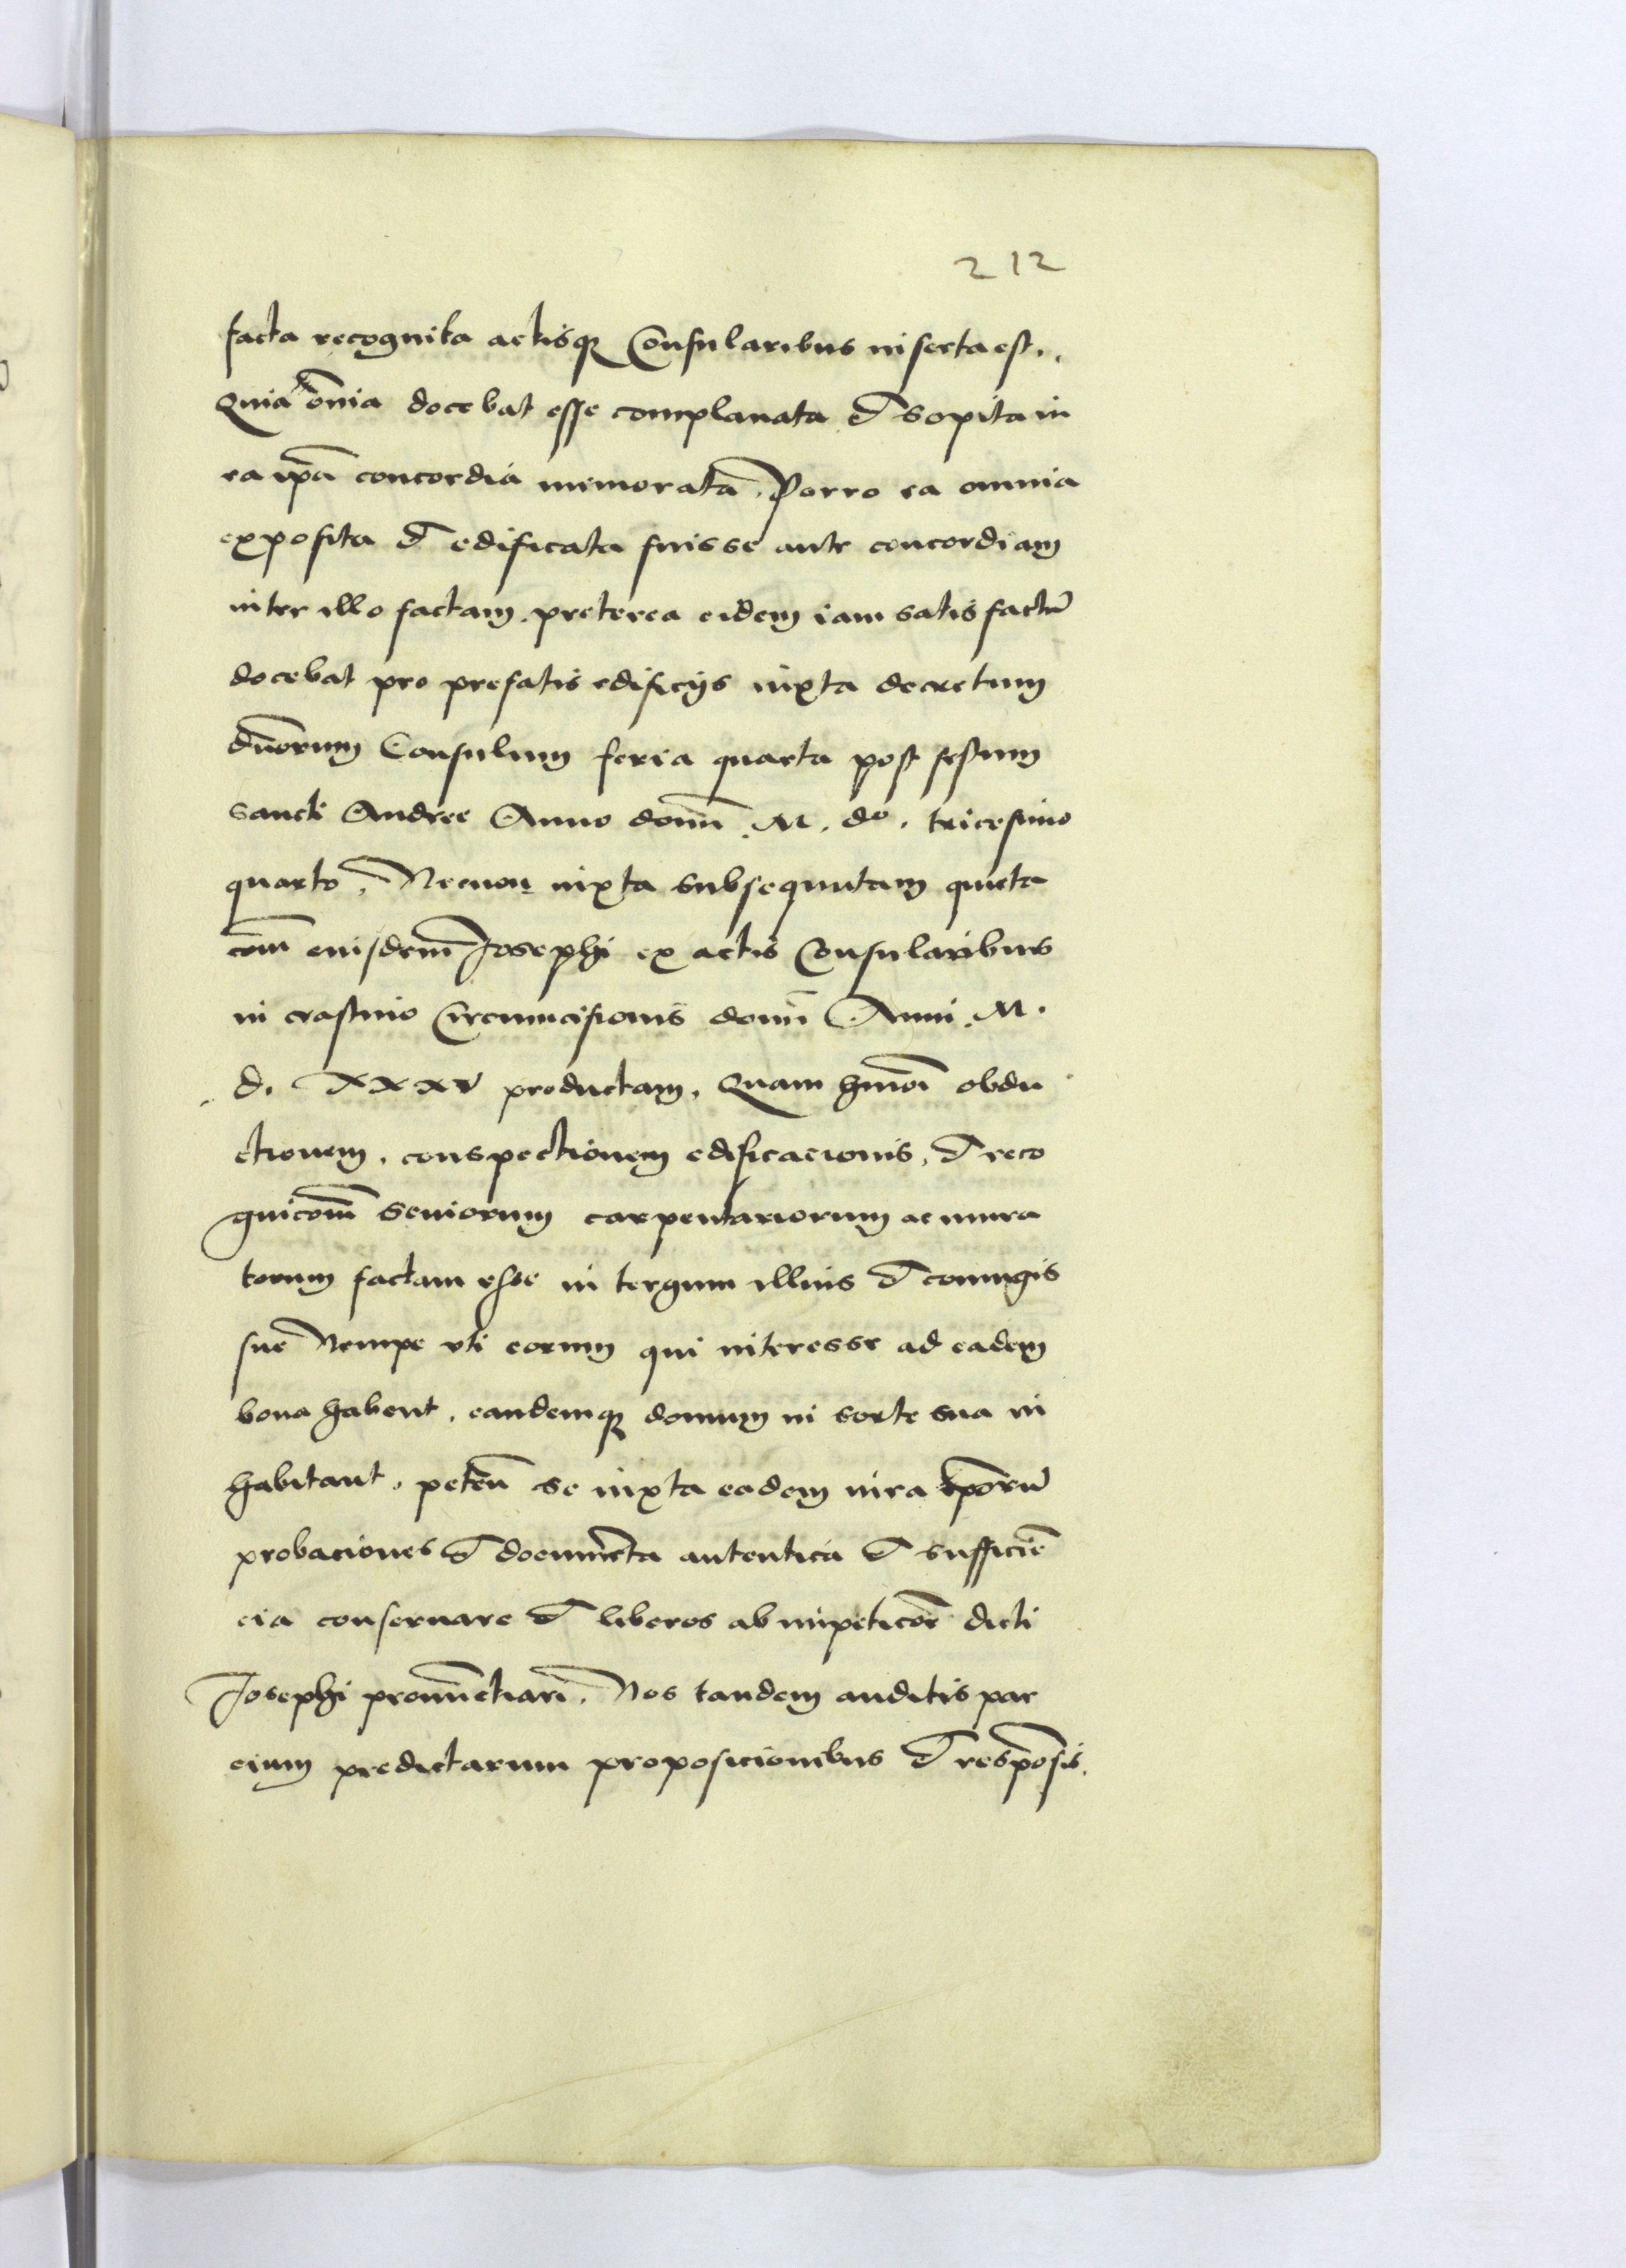 212
facta recognita actisq̃ Consularibus inserta est.
Quia om̄ia docebat esse complanata et sopita in
ea ip̄a concordia memorata. Porro ea omnia
exposita et edificata fuisse ante concordiam
inter illo factam. preterea eidem iam satis factū
docebat pro prefatis edificijs iuxta decretum
dn̄orum Consulum feria quarta post festum
sancti Andree Anno domī .M. dº. tricesimo
quarto. Necnon iuxta subsequutam quieta
com̄ eiusdem̄ Josephi ex actis Consularibus
in crastino Circumcisionis domī Anni .M.
d. XXXV productam. Quam hmōi obdu
ctionem. conspectionem edificacionis, et reco
gnicom̄ seniorum carpentariorum ac mura
torum factam esse in tergum illius et coniugis
sue Nempe vti eorum qui interesse ad eadem
bona habent, eandemq̃ domum in sorte sua in
habitant. peteñ se iuxta eadem iura ip̄orū
probaciones et documēta autentica et sufficiē
cia conseruare et liberos ab impeticōe dicti
Josephi pronūctiari. Nos tandem auditis par
cium predictarum proposicionibus et respōsis.